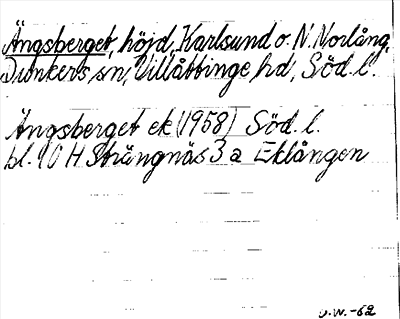 Ängsberget, höjd, Karlsund o. N. Norlång,
Dunkers sn, Villåttinge hd, Söd. l.
Ängsberget ek (1958) Söd. l.
bl. 10 H Strängnäs 3 a Eklången
J.W.-62